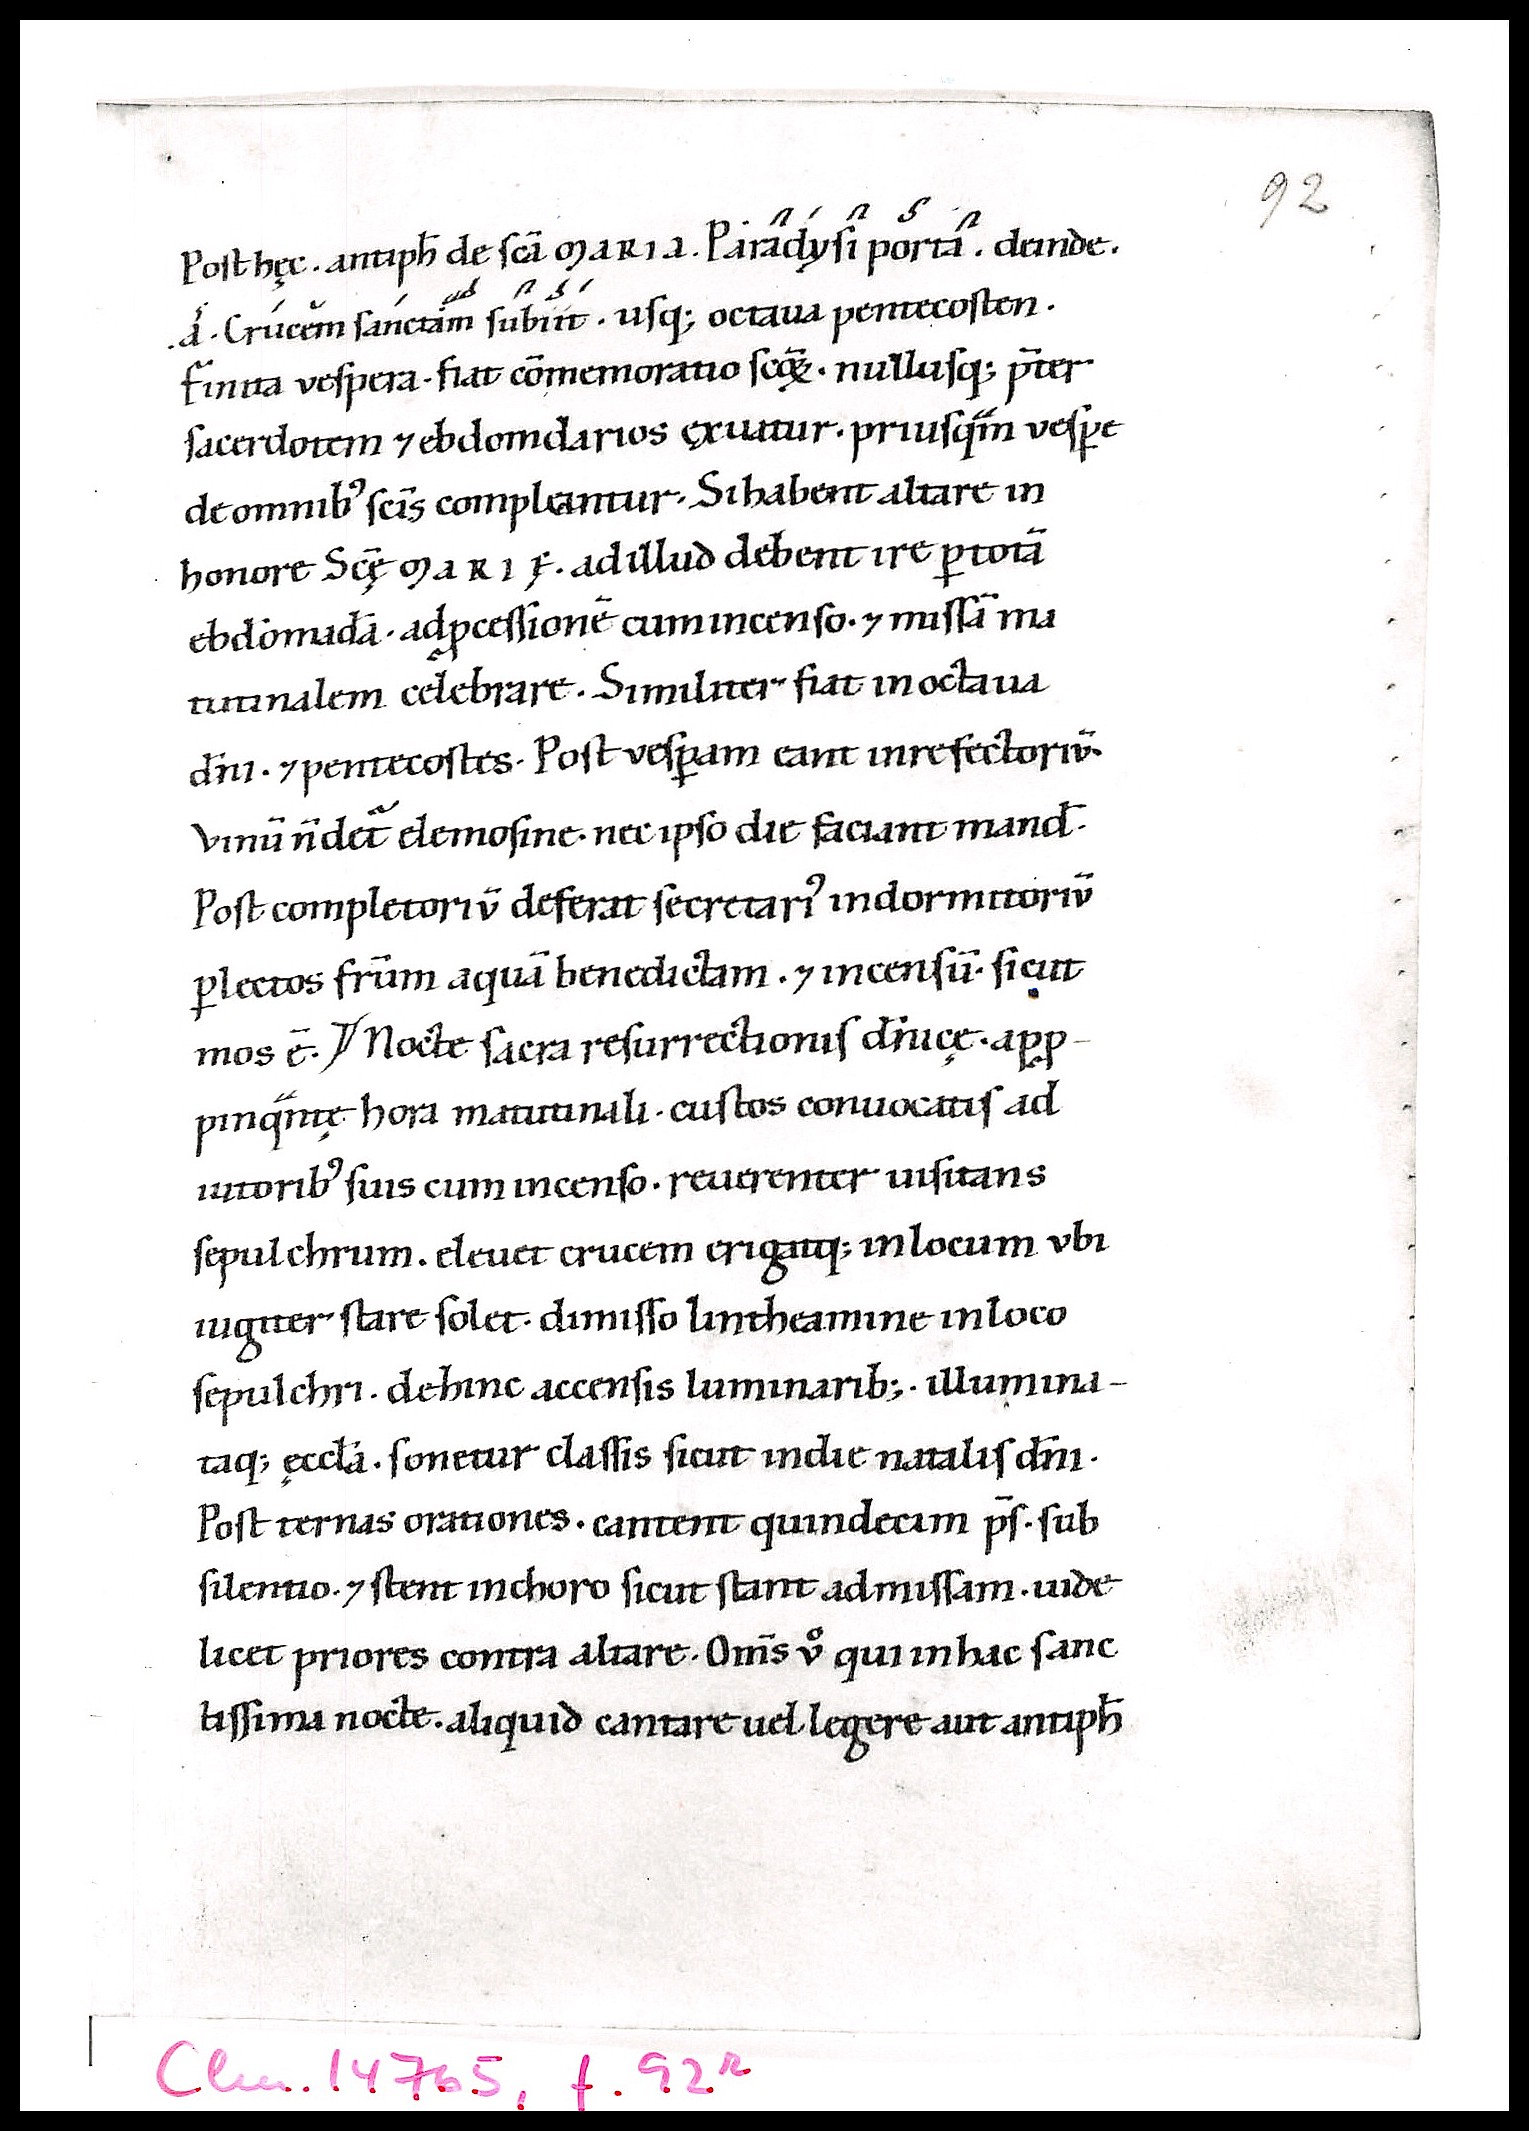 92
Post hęc . antiph̄ de sc̄a MARIA . Paradysi porta . deinde .
.a̓ . Crucem sanctam subiit . usq; octaua pentecosten .
Finita vespera . fiat cōmemoratio scꝙ̄ . nullusq; p̄ter
sacerdotem ⁊ ebdomdarios ęxuatur . priusq̄m vesꝑe
de omnibꝰ sc̄is compleantur . Si habent altare in
honore Sc̄ę MARIĘ . ad illud debent ire ꝑ totā
ebdomadā . ad ꝓcessionē cum incenso . ⁊ missā ma
tutinalem celebrare . Similiter fiat in octaua
dn̄i . ⁊ pentecostes . Post vesꝑam eant in refectoriū .
Vinū n̄ det᷑ elemosine . nec ipso die faciant mand̄ .
Post completoriū deferat secretariꝰ in dormitoriū
ꝑ lectos fr̄um aquā benedictam . ⁊ incensū . sicut
mos ē . Nocte sacra resurrectionis dn̄icę . apꝓ-
pinq̄ntę hora matutinali . custos conuocatis ad
iutoribꝰ suis cum incenso . reuerenter uisitans
sepulchrum . eleuet crucem erigatq; in locum vbi
iugiter stare solet . dimisso lintheamine in loco
sepulchri . dehinc accensis luminarib; . illumina-
taq; ęccl̄a . sonetur classis sicut in die natalis dn̄i .
Post ternas orationes . cantent quindecim p̄s . sub
silentio . ⁊ stent in choro sicut stant ad missam . uide
licet priores contra altare . Om̄s v̊ qui in hac sanc
tissima nocte . aliquid cantare uel legere aut antiph̄
Clm. 14765, f. 92r